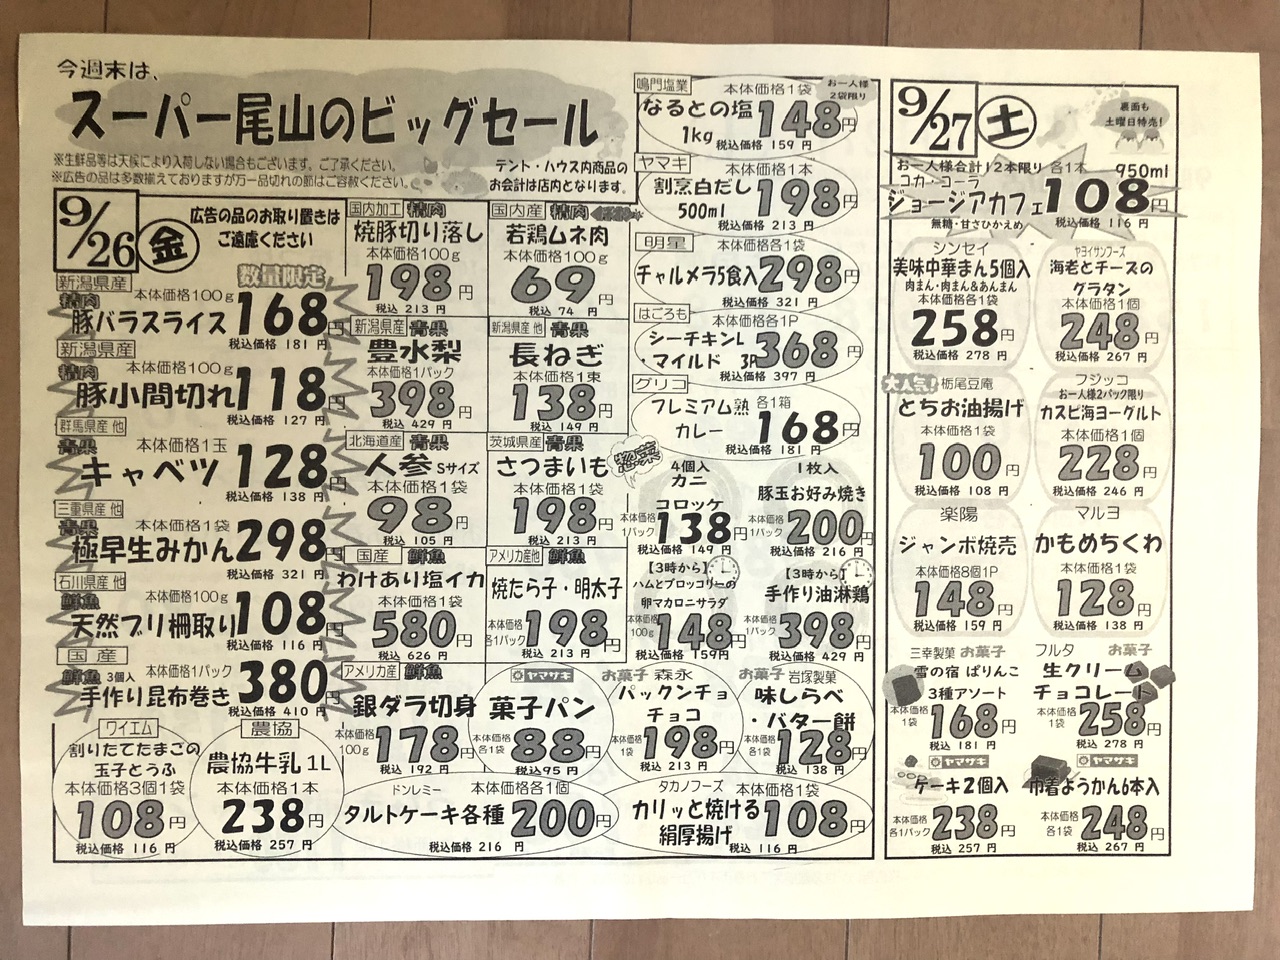 今週末は、
スーパー尾山のビッグセール
※生鮮品等は天候により入荷しない場合もございます。ご了承ください。
※広告の品は多数揃えておりますが万一品切れの節はご容赦ください。
テント・ハウス内商品の
お会計は店内となります。
9/26 金
広告の品のお取り置きは
ご遠慮ください
数量限定
新潟県産
精肉
本体価格100g
豚バラスライス 168円
税込価格 181 円
新潟県産
精肉
本体価格100g
豚小間切れ 118円
税込価格 127 円
群馬県産 他
青果
本体価格1玉
キャベツ 128円
税込価格 138 円
三重県産 他
青果
本体価格1袋
極早生みかん 298円
税込価格 321 円
石川県産 他
鮮魚
本体価格100g
天然ブリ柵取り 108円
税込価格 116 円
国産
鮮魚 3個入
本体価格1パック
手作り昆布巻き 380円
税込価格 410 円
ワイエム
割りたてたまごの
玉子とうふ
本体価格3個1袋
108円
税込価格 116 円
農協
農協牛乳 1L
本体価格1本
238円
税込価格 257 円
国内加工 精肉
焼豚切り落し
本体価格100g
198円
税込 213 円
国内産 精肉
若鶏ムネ肉
本体価格100g
69円
税込 74 円
新潟県産 青果
豊水梨
本体価格1パック
398円
税込 429 円
新潟県産 他 青果
長ねぎ
本体価格1束
138円
税込 149 円
北海道産 青果
人参 Sサイズ
本体価格1袋
98円
税込 105 円
茨城県産 青果
さつまいも
本体価格1袋
198円
税込 213 円
国産 鮮魚
わけあり塩イカ
本体価格1袋
580円
税込 626 円
アメリカ産他 鮮魚
焼たら子・明太子
本体価格
各1パック
198円
税込 213 円
アメリカ産 鮮魚
銀ダラ切身
本体価格
100g
178円
税込 192 円
ヤマザキ
菓子パン
本体価格
各1袋
88円
税込 95 円
ドンレミー
本体価格各1個
タルトケーキ各種 200円
税込価格 216 円
鳴門塩業
本体価格1袋
お一人様
2袋限り
なるとの塩
1kg
148円
税込価格 159 円
ヤマキ
本体価格1本
割烹白だし
500ml
198円
税込価格 213 円
明星
本体価格各1袋
チャルメラ5食入 298円
税込価格 321 円
はごろも
本体価格各1P
シーチキンL
・マイルド 3P
368円
税込価格 397 円
グリコ
プレミアム熟
カレー
各1箱
168円
税込価格 181 円
惣菜
4個入
カニ
コロッケ
本体価格
1パック
138円
税込価格 149 円
1枚入
豚玉お好み焼き
本体価格
1パック
200円
税込価格 216 円
【3時から】
ハムとブロッコリーの
卵マカロニサラダ
本体価格
100g
148円
税込価格 159円
【3時から】
手作り油淋鶏
本体価格
1パック
398円
税込価格 429 円
お菓子 森永
パックンチョ
チョコ
本体価格
1袋
198円
税込 213 円
お菓子 岩塚製菓
味しらべ
・バター餅
本体価格
各1袋
128円
税込 138 円
タカノフーズ
本体価格1袋
カリッと焼ける
絹厚揚げ
108円
税込 116 円
9/27 土
裏面も
土曜日特売!
お一人様合計12本限り 各1本
950ml
コカ・コーラ
ジョージアカフェ 108円
無糖・甘さひかえめ
税込価格 116 円
シンセイ
美味中華まん5個入
肉まん・肉まん&あんまん
本体価格各1袋
258円
税込価格 278 円
ヤヨイサンフーズ
海老とチーズの
グラタン
本体価格1個
248円
税込価格 267 円
大人気!
栃尾豆庵
とちお油揚げ
本体価格1袋
100円
税込価格 108 円
フジッコ
お一人様2パック限り
カスピ海ヨーグルト
本体価格1個
228円
税込価格 246 円
楽陽
ジャンボ焼売
本体価格8個1P
148円
税込価格 159 円
マルヨ
かもめちくわ
本体価格1袋
128円
税込価格 138 円
三幸製菓 お菓子
雪の宿 ぱりんこ
3種アソート
本体価格
1袋
168円
税込 181 円
フルタ お菓子
生クリーム
チョコレート
本体価格
1袋
258円
税込 278 円
ヤマザキ
ケーキ2個入
本体価格
各1パック
238円
税込 257 円
ヤマザキ
巾着ようかん6本入
本体価格
各1袋
248円
税込 267 円